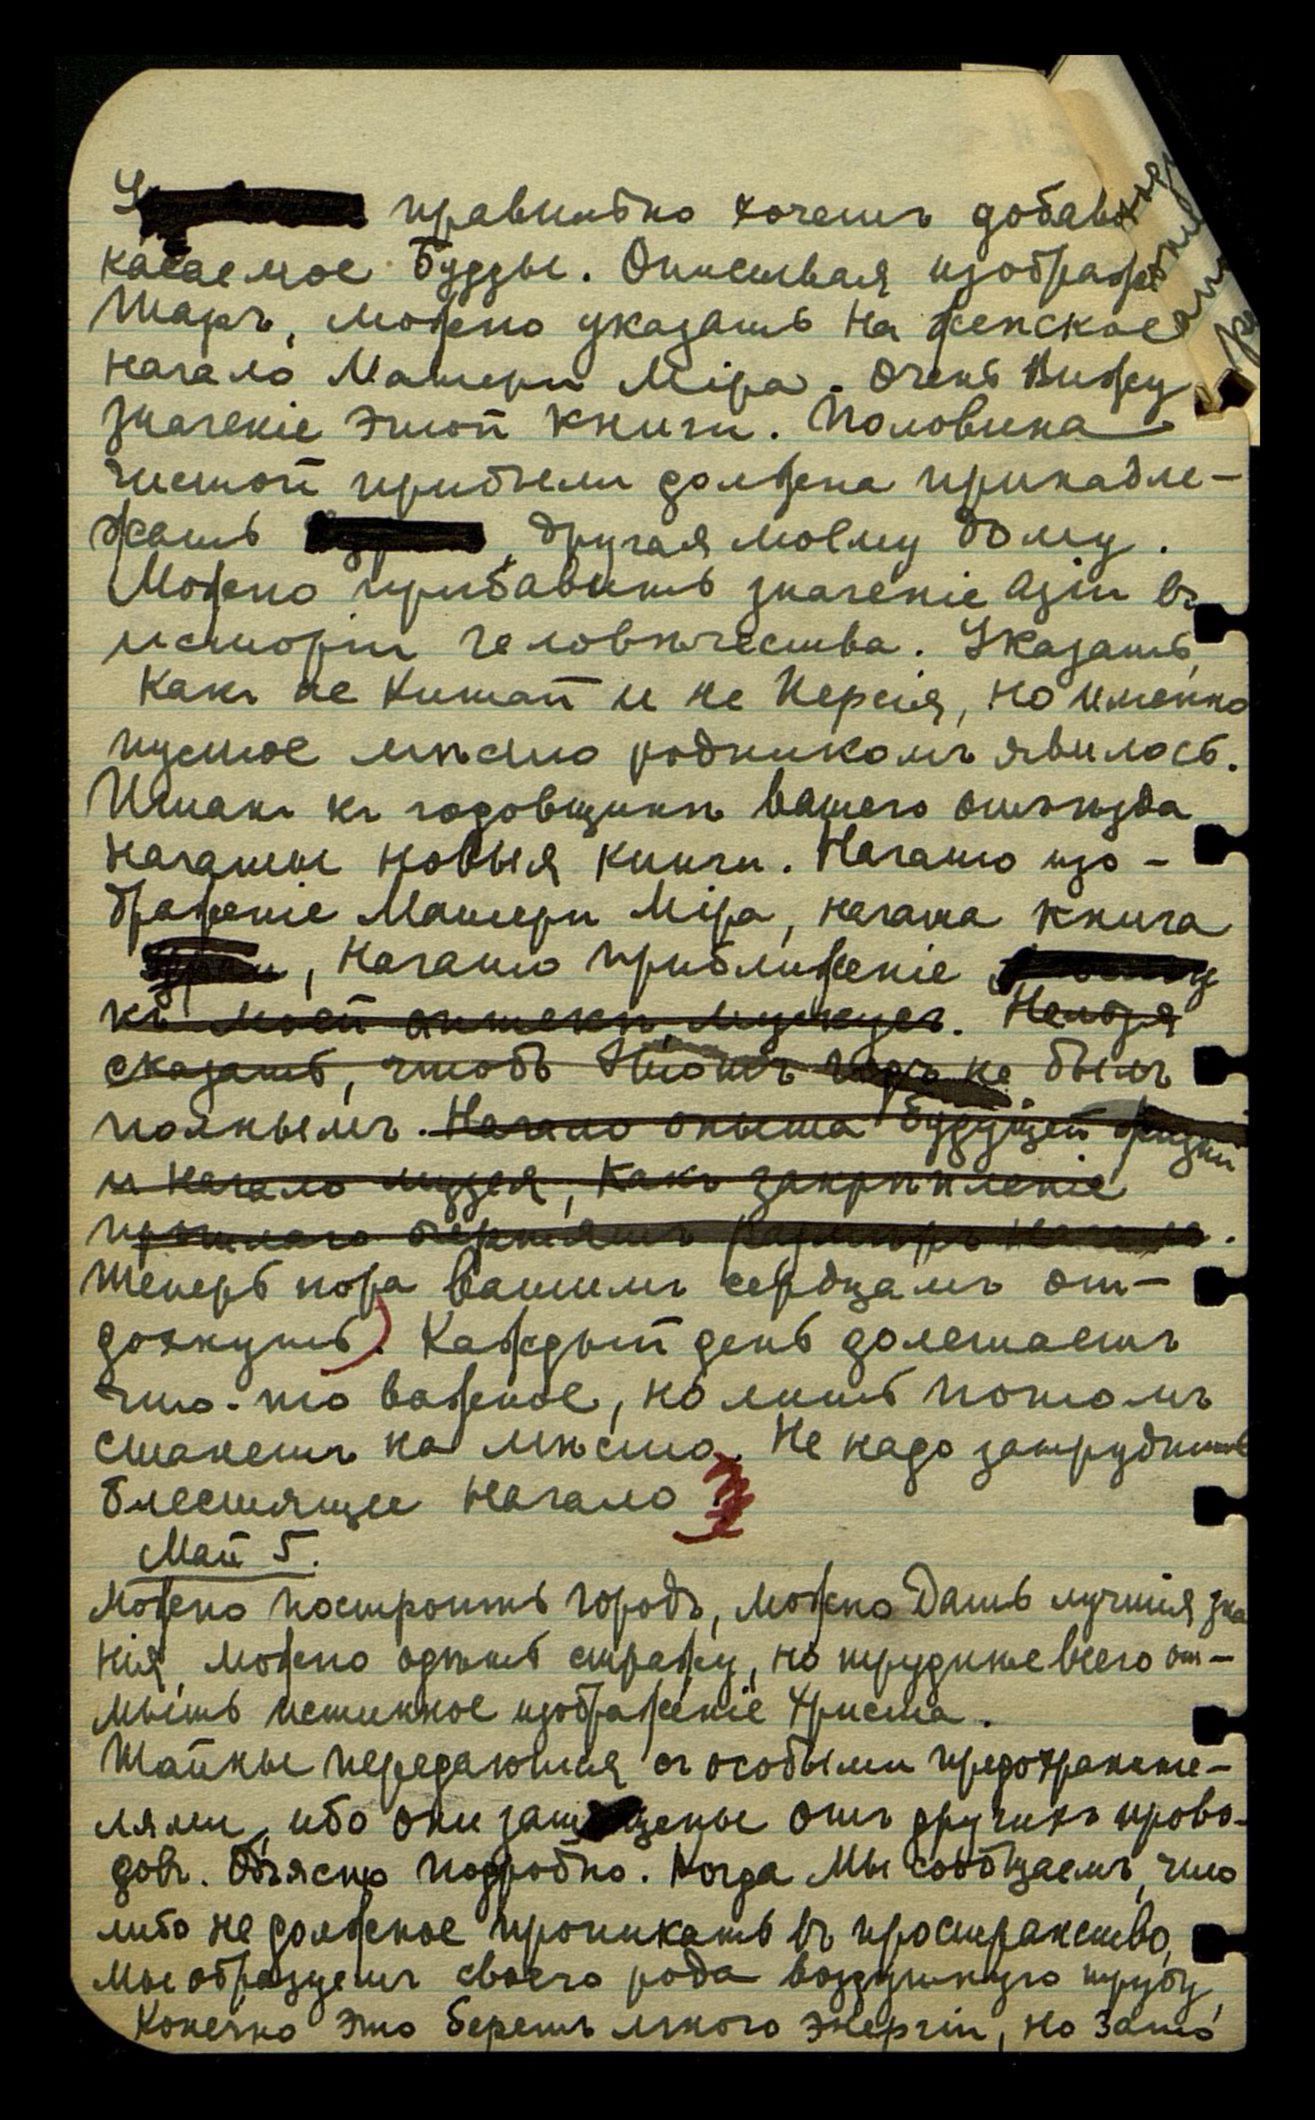 правильно хочешь добав
касаемое Будды. Описывая изображ
Таръ, можно указать на женское
начало Матери Міра. Очень Вижу
значеніе этой книги. Половина
чистой прибыли должна принадле-
жать , другая моему дому.
Можно прибавить значеніе Азіи въ
исторіи человѣчества. Указать,
какъ не Китай и не Персія, но именно
пустое мѣсто родникомъ явилось.
Итакъ къ годовщинѣ вашего отъѣзда
начаты новыя книги. Начато изо-
браженіе Матери Міра, начата книга
, начато приближеніе
къ моей аптекѣ, музеуса. Нельзя
сказать, чтобъ этотъ годъ не былъ
полнымъ. Начало опыта будущей жизни
и начало музея, какъ закрѣпленіе
прошлаго
Теперь пора вашимъ сердцамъ от-
дохнуть. Каждый день долетаетъ
что-то важное, но лишь потомъ
станетъ на мѣсто. Не надо затруднить
блестящее начало.
Май 5.
Можно построить городъ, можно Дать лучшія зна
нія, можно одѣть стражу, но труднѣе всего от-
мыть истинное изображеніе Христа.
Тайны передаются съ особыми предохраните-
лями, ибо они защищены отъ другихъ прово-
довъ. Объясню подробно. Когда Мы сообщаемъ, что
либо не должное проникать въ пространство,
мы образуемъ своего рода воздушную трубу,
Конечно это беретъ много энергіи, но зато